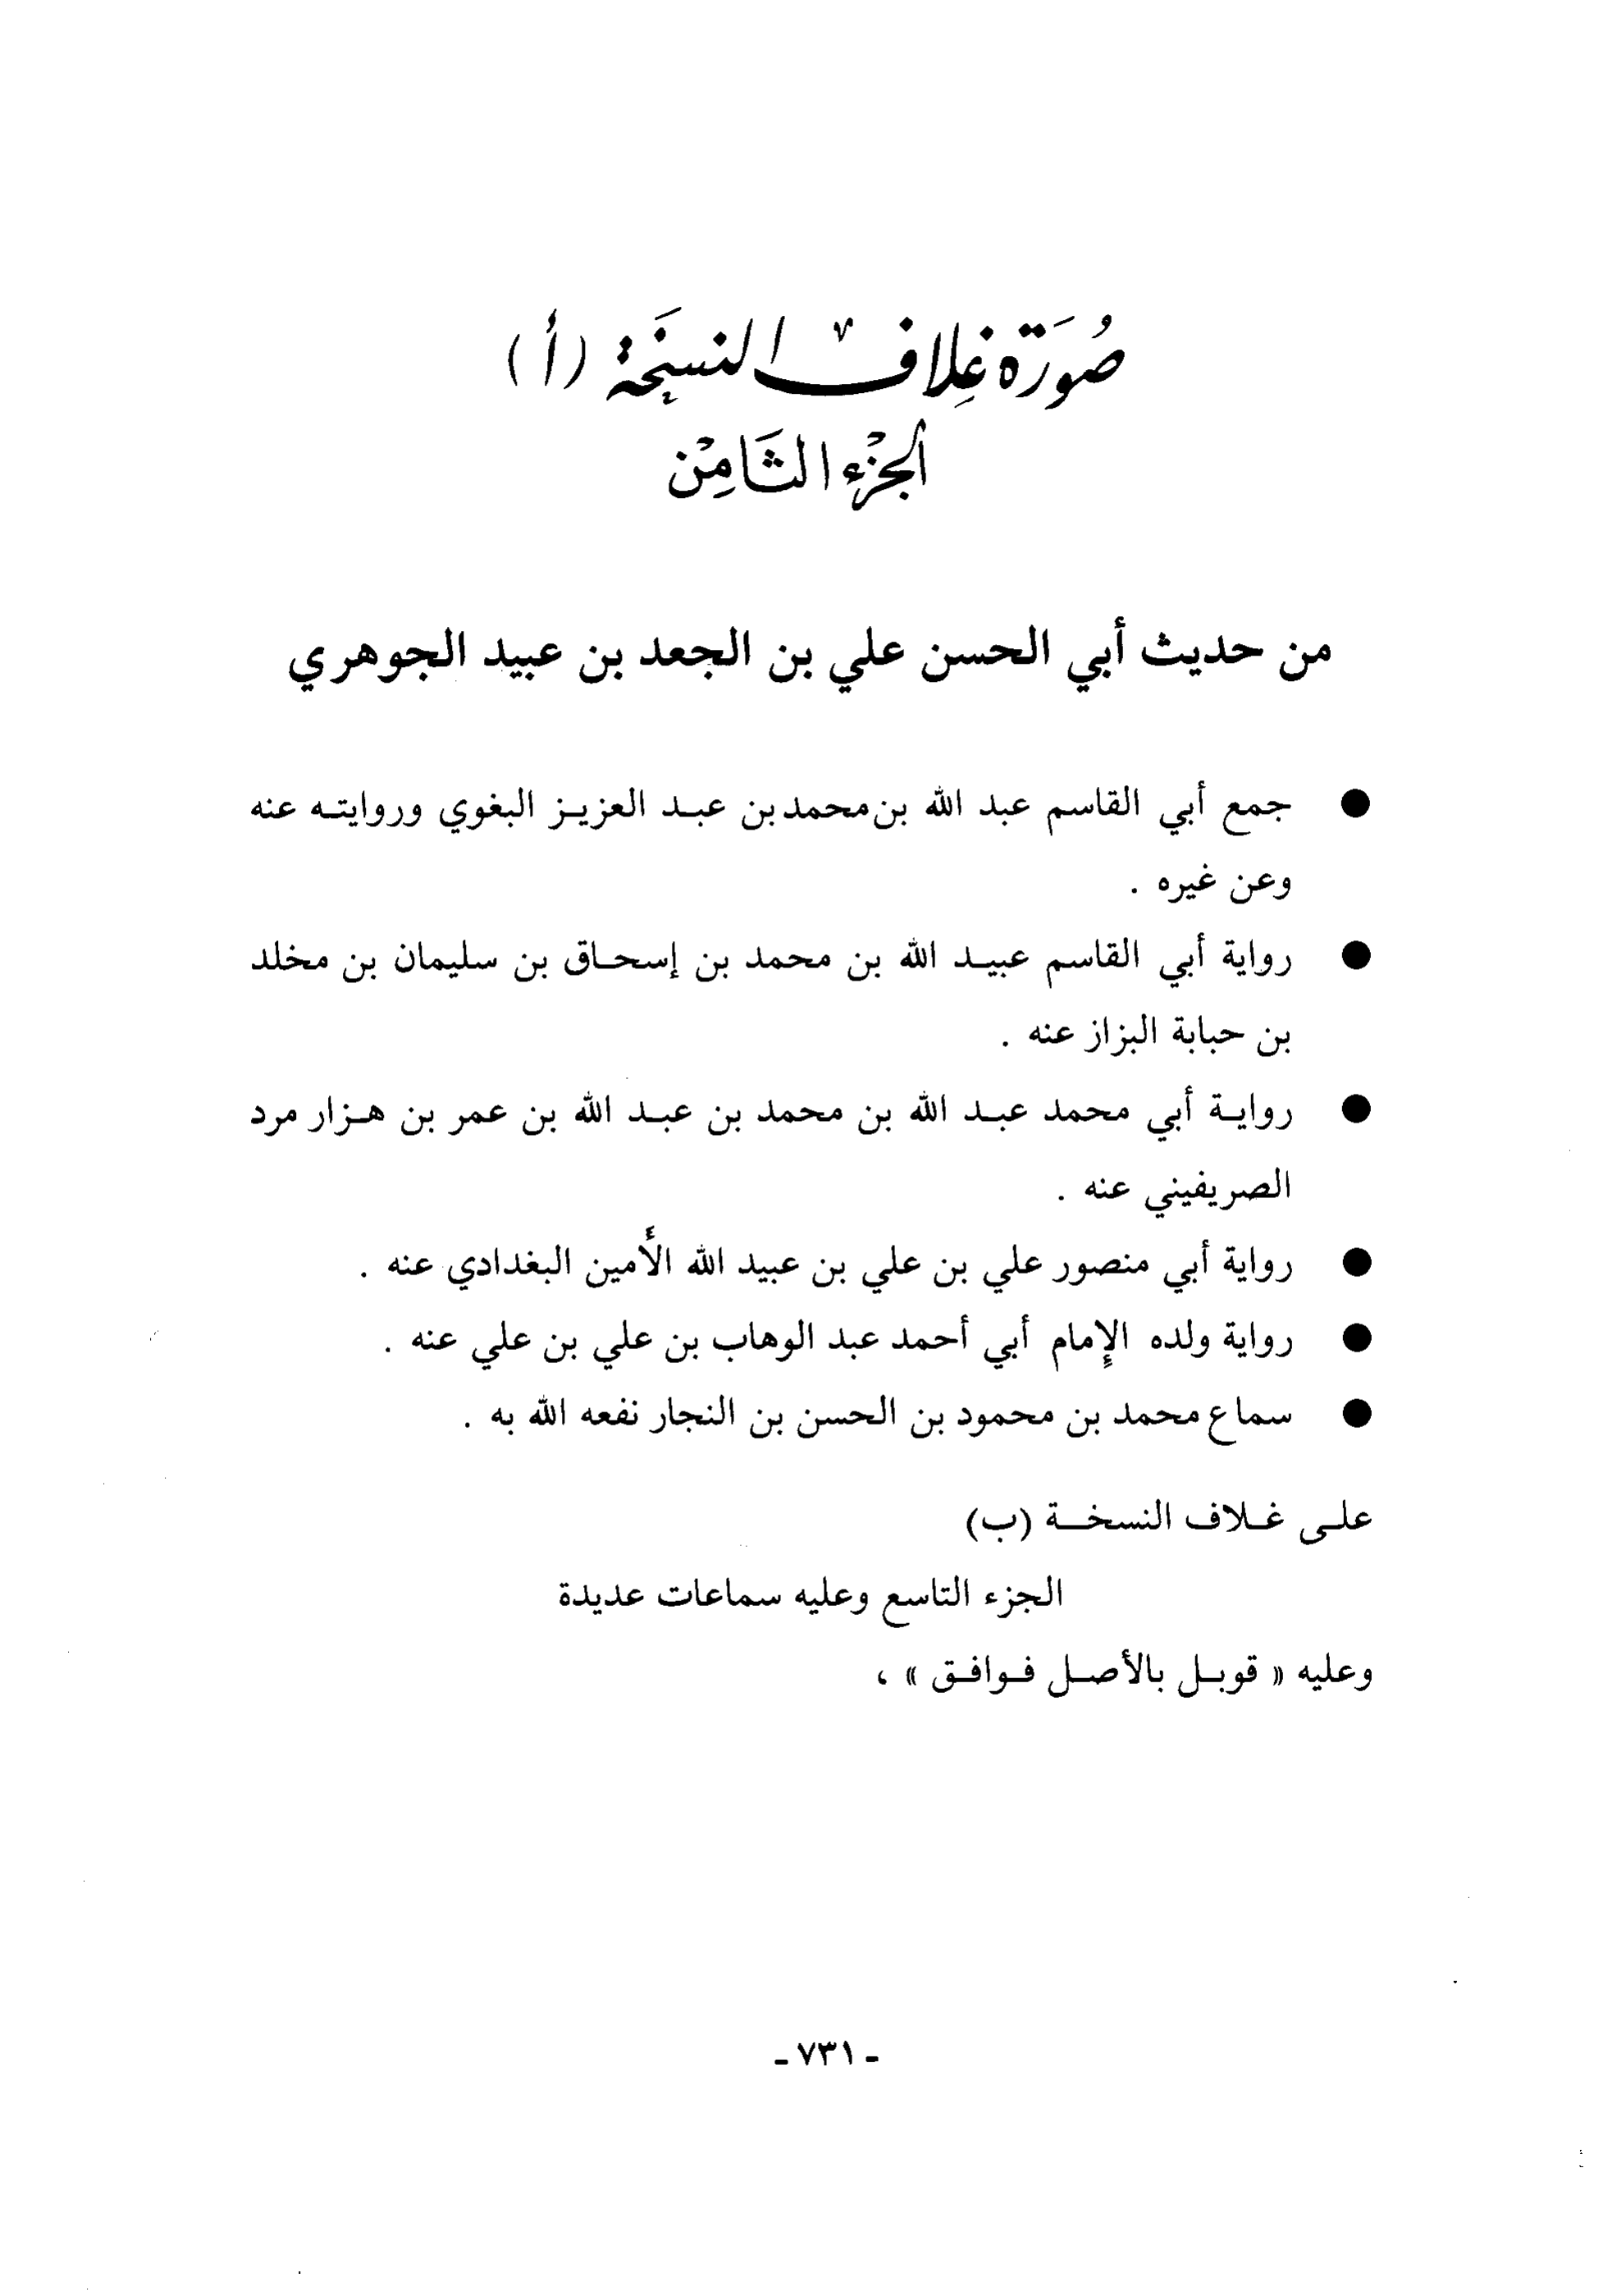 صُورَة غِلاف النسخَة (أ)
الجزْء الثَامِنْ
من حديث أبي الحسن علي بن الجعد بن عبيد الجوهري
● جمع أبي القاسم عبد الله بن محمد بن عبـد العزيـز البغوي وروايتـه عنه
وعن غيره .
● رواية أبي القاسم عبيـد الله بن محمد بن إسحـاق بن سليمان بن مخلد
بن حبابة البزاز عنه .
● روايـة أبي محمد عبـد الله بن محمد بن عبـد الله بن عمر بن هـزار مرد
الصريفيني عنه .
● رواية أبي منصور علي بن علي بن عبيد الله الأمين البغدادي عنه .
● رواية ولده الإمام أبي أحمد عبد الوهاب بن علي بن علي عنه .
● سماع محمد بن محمود بن الحسن بن النجار نفعه الله به .
علـى غـلاف النسخـة (ب)
الجزء التاسع وعليه سماعات عديدة
وعليه « قوبـل بالأصـل فـوافـق » ،
- ٧٣١ -